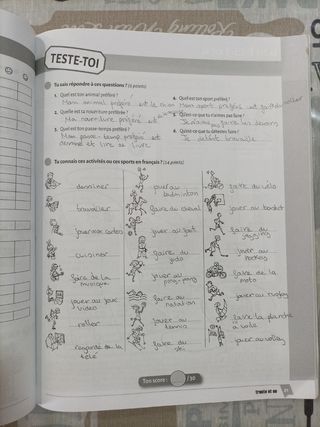 TESTE-TOI
Tu sais répondre à ces questions ? (6 points)
1. Quel est ton animal préféré ?
Mon animal préféré est le
2. Quelle est ta nourriture préférée ?
Ma nourriture préféré est
3. Quel est ton passe-temps préféré ?
Mon passe-temps préféré est
et lire se livre
4. Quel est ton sport préféré ?
Mon sport préféré est
5. Qu'est-ce que tu n'aimes pas faire ?
faire les devoirs
6. Qu'est-ce que tu détestes faire ?
Je travaille
Tu connais ces activités ou ces sports en français ? (24 points)
dessiner
travailler
jouer aux cartes
cuisiner
faire de la
musique
jouer au jeux
video
roller
regarde de la
télé
jouer au
badminton
faire du cheval
jouer au foot
faire du
judo
jouer au
ping-pong
faire du
natation
jouer au
tennis
faire du
ski
faire du vélo
jouer au basket
faire du
jogging
jouer au
hockey
faire de la
moto
jouer au rugby
faire la planche
à voile
jouer au volley
Ton score : /30